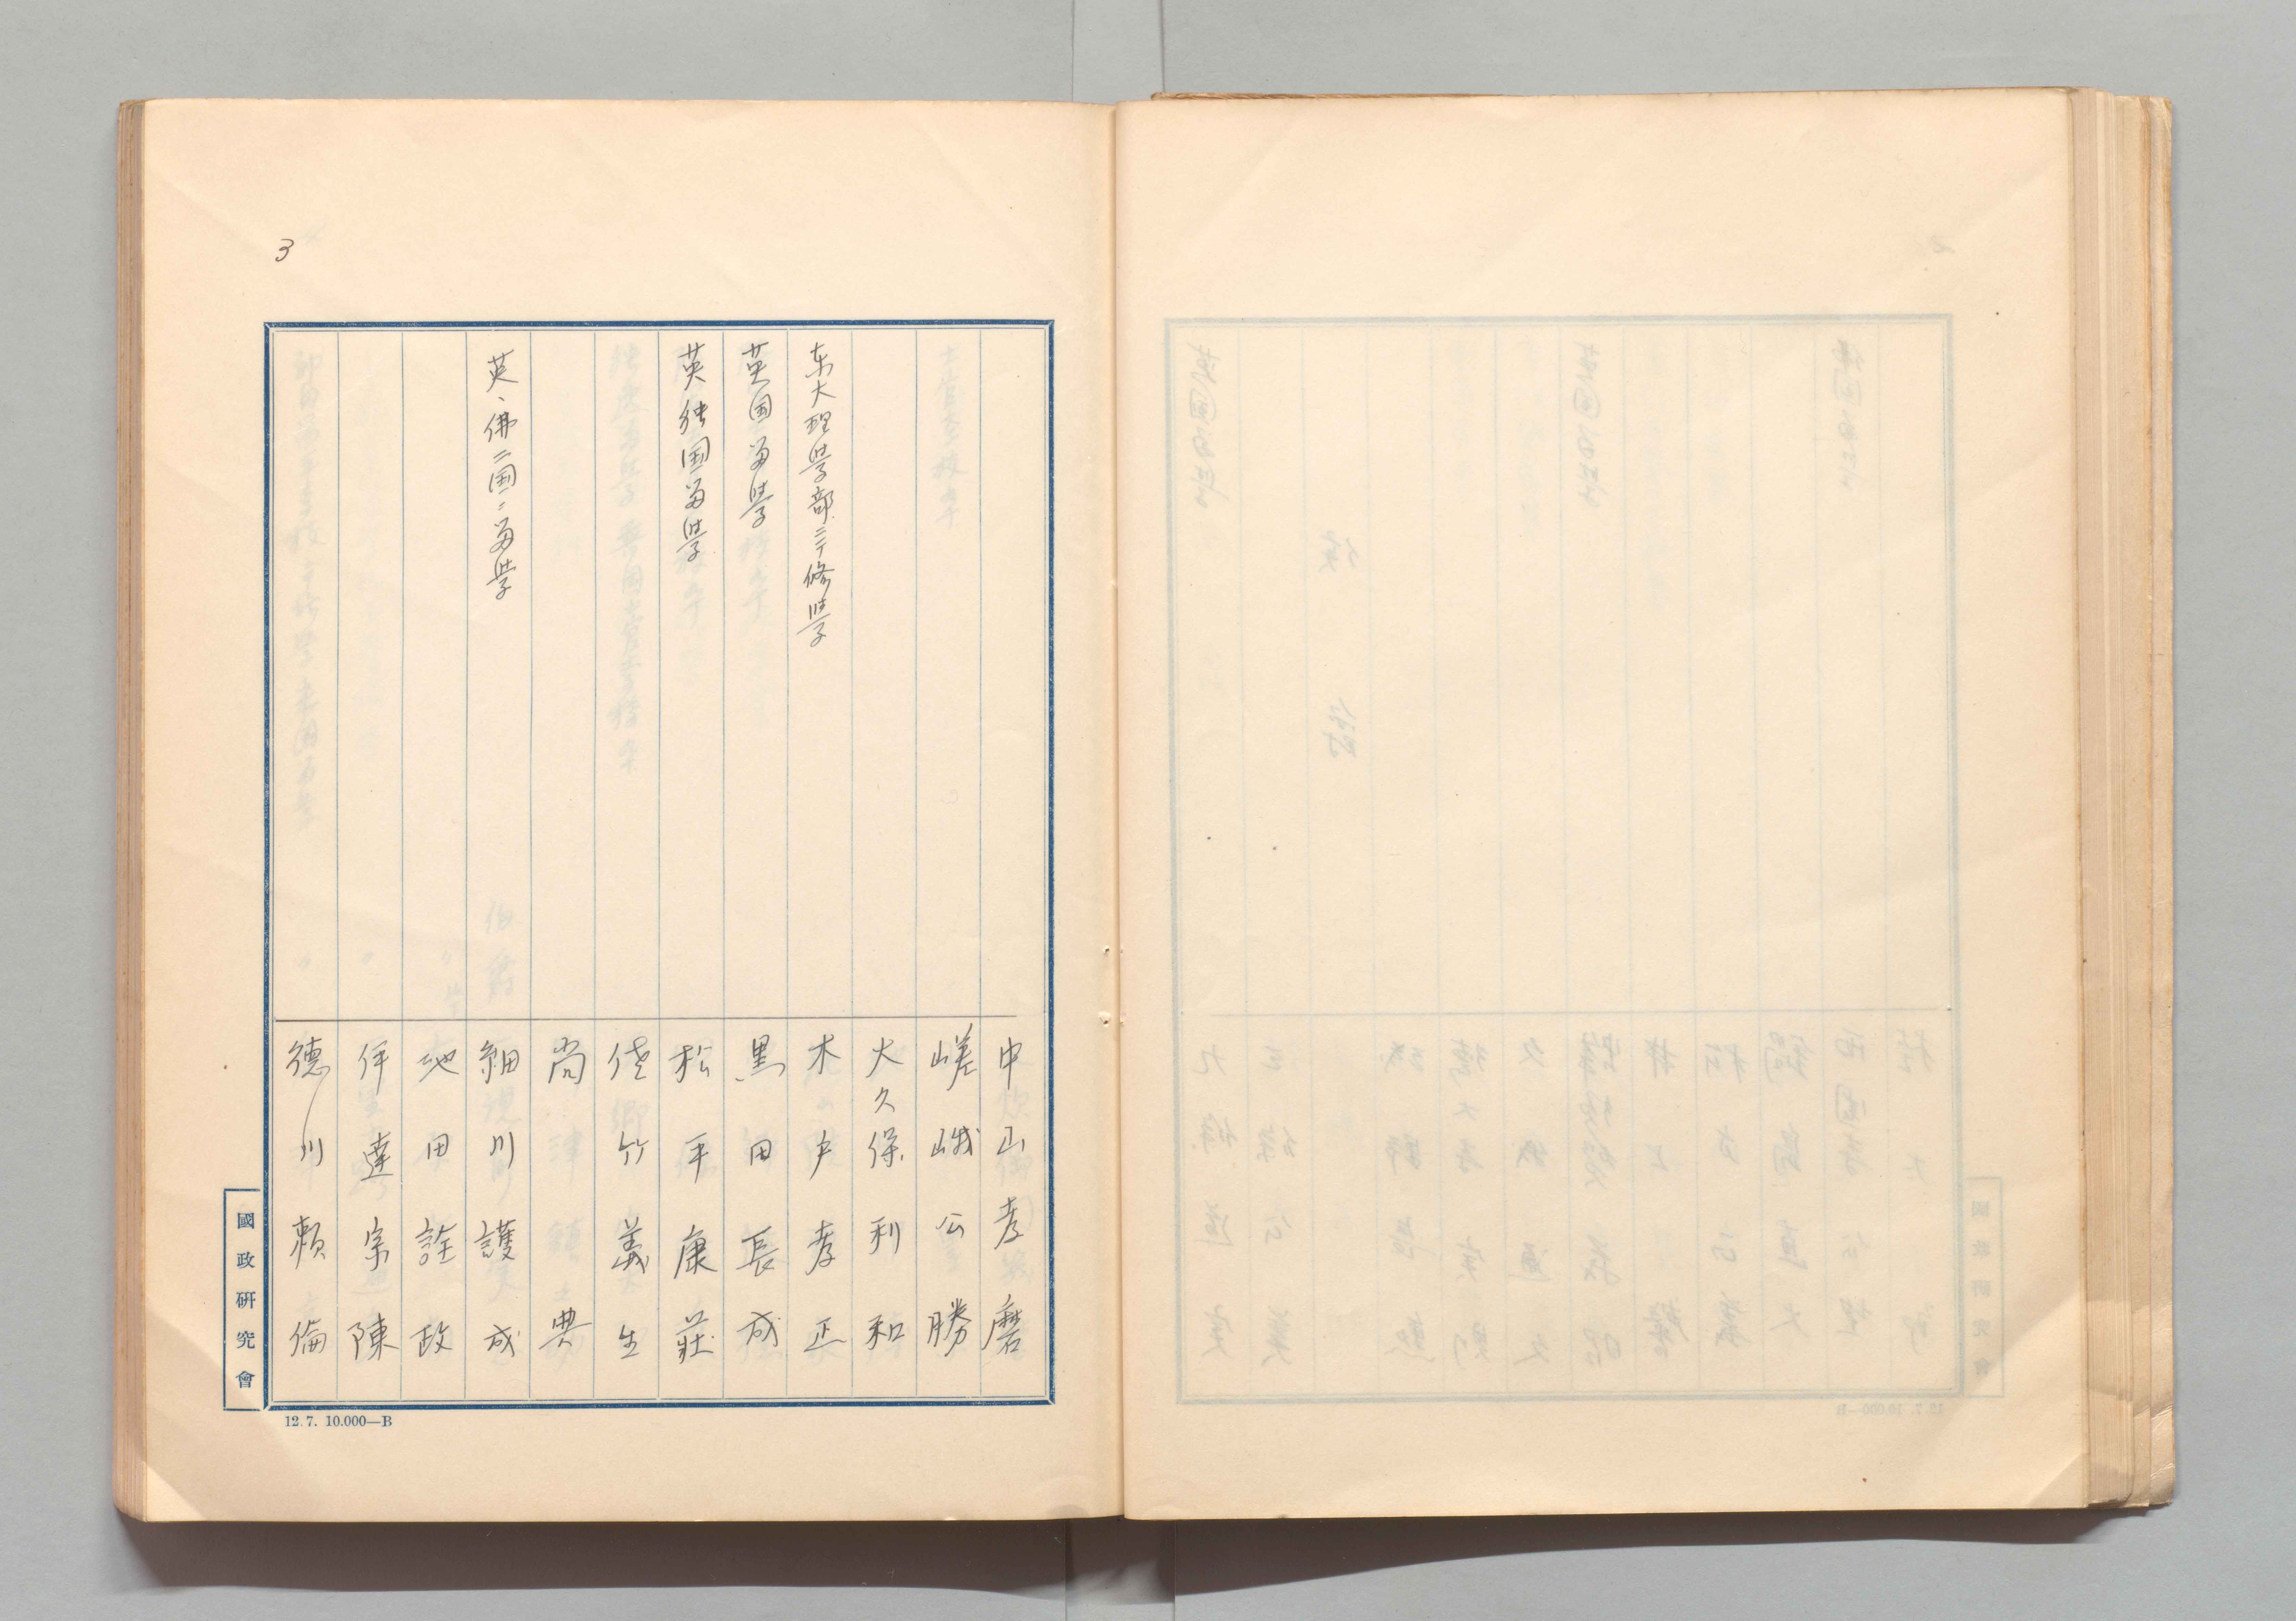 3
中山孝麿
嵯峨公勝
大久保利和
东大理学部ニテ修学
木戸孝正
英国留学
黒田長成
英独国留学
松平康荘
佐竹義生
尚典
英、佛二国ニ留学
細川護成
池田詮政
伊達宗陳
徳川頼倫
國政研究會
12.7. 10.000—B